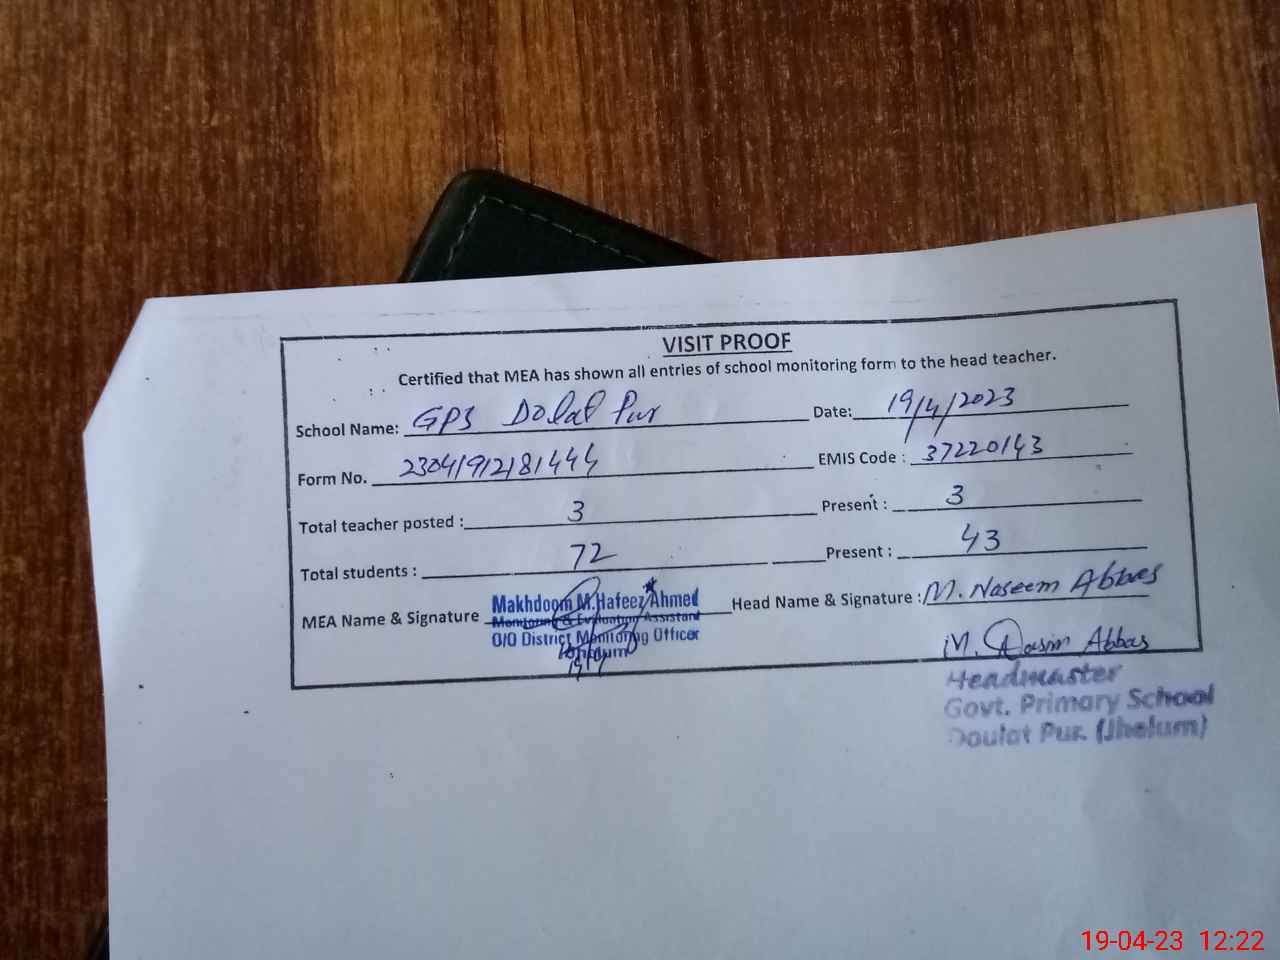 VISIT PROOF
Certified that MEA has shown all entries of school monitoring form to the head teacher.
School Name: GPS Dolat Pur Date: 19/4/2023
Form No. 23041912181444 EMIS Code : 37220143
Total teacher posted : 3 Present : 3
Total students : 72 Present : 43
MEA Name & Signature Makhdoom M.Hafeez Ahmed Head Name & Signature : M. Naseem Abbas
Monitoring & Evaluation Assistant
O/O District Monitoring Officer
Jhelum
19/4
M. Abbas
Headmaster
Govt. Primary School
Doulat Pur. (Jhelum)
19-04-23 12:22